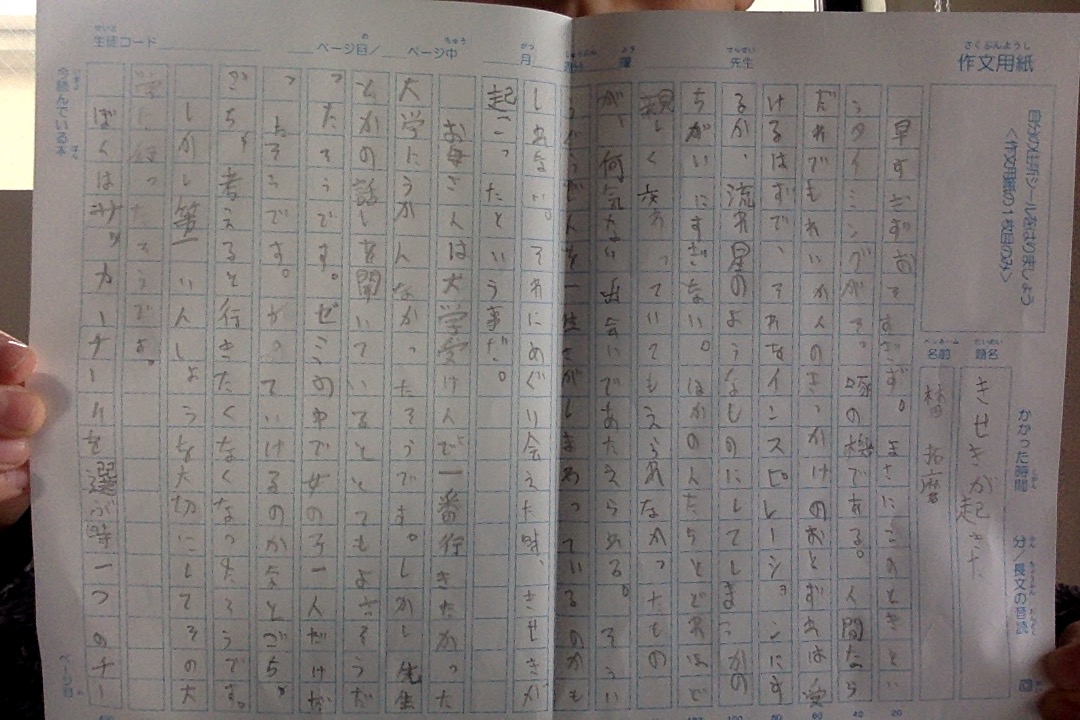 作文用紙
さくぶんようし
自分の住所シールをはりましょう
<作文用紙の1枚目のみ>
題名 きせきが起きた
名前
かかった時間 分/長文の音読 回
月 週 曜 先生
生徒コード ページ目/ ページ中
早すぎずおそすぎず。まさにこのときとい
うタイミングがそ。啄の機である。人間なら
だれでもれいかんのきっかけのおとずれは受
けるはずで、それをインスピレーションにす
るか、流れ星のようなものにしてしまうかの
ちがいにすぎない。ほかの人たちとどれほど
親しく交わっていてもえられなかったもの
が、何気ない出会いであたえられる。そうい
うぐうぜんを一生さがしまわっているのかも
しれない。それにめぐり会えた時、きせきが
起こったという事だ。
お母さんは大学受けんで一番行きたかった
大学にうかんなかったそうです。しかし先生
とかの話しを聞いているととてもよさそうだ
ったそうです。ぜみの中で女の子一人だけだ
ったそうです。かっていけるのかなとごち
ごちゃ考えると行きたくなくなったそうです。
しかし第一いんしょうを大切にしてその大
学に行ったそうです。
ぼくはサッカーチームを選ぶ時一つのチー
今読んでいる本
ページ目